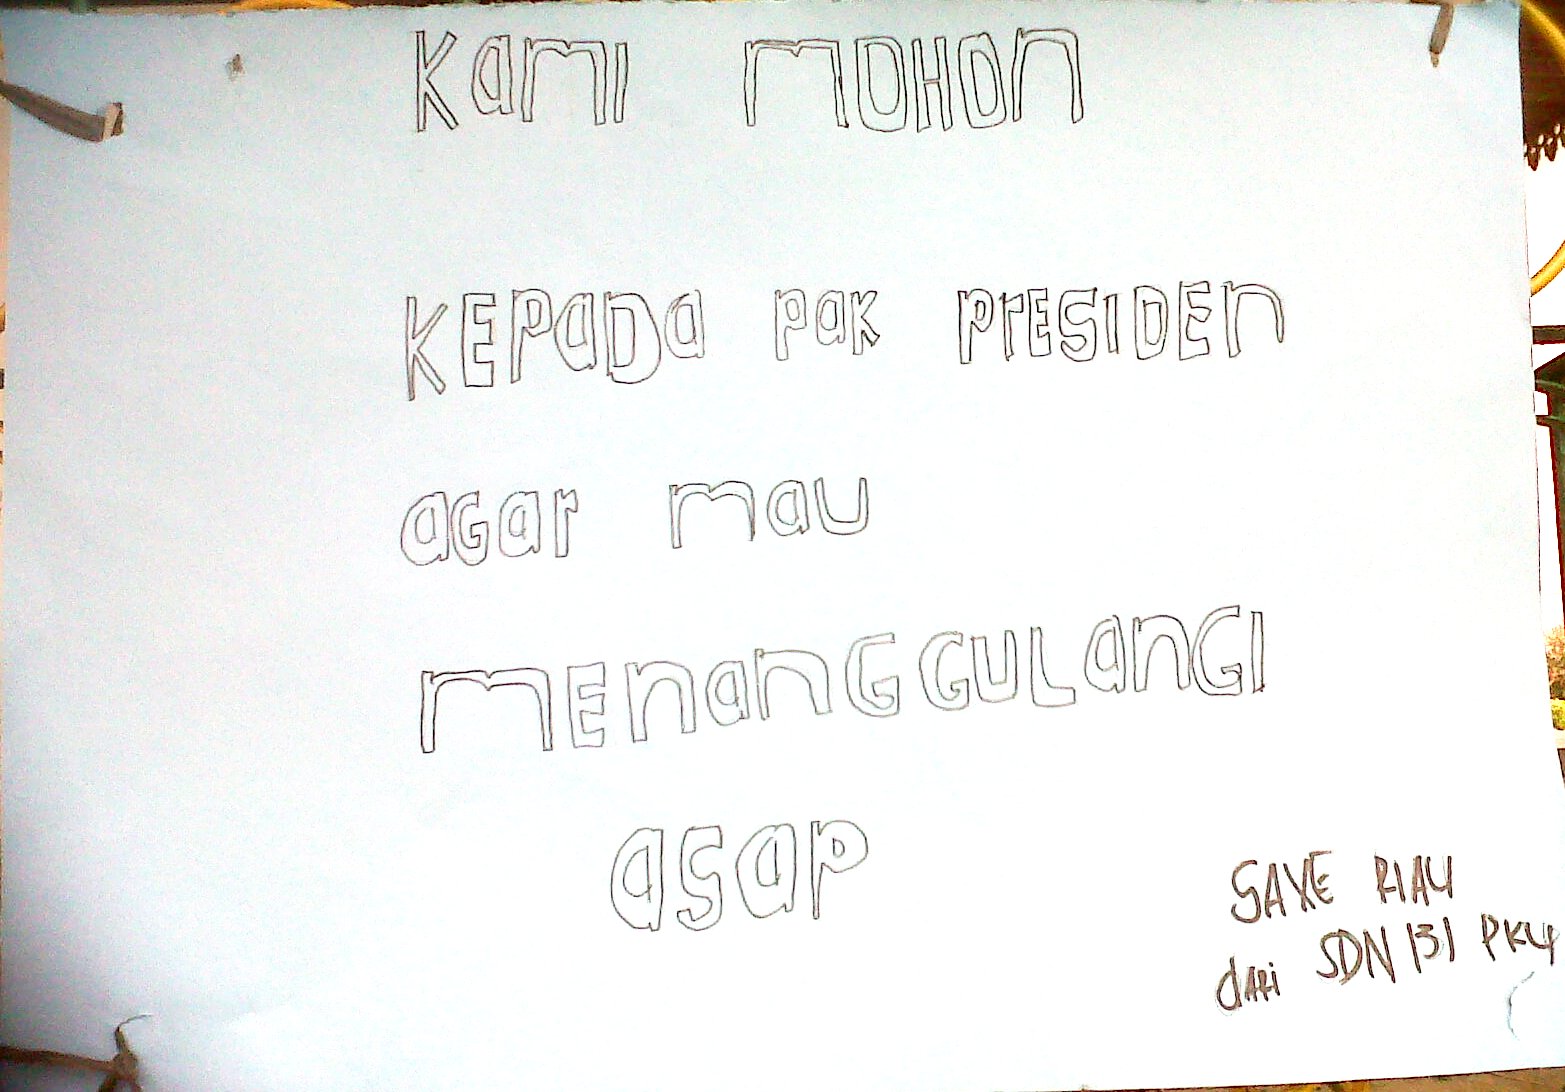 Kami MOHON
KEPADA PAK PRESIDEN
AGAR MAU
MENANGGULANGI
ASAP
SAVE RIAU
dARi SDN 131 PKU